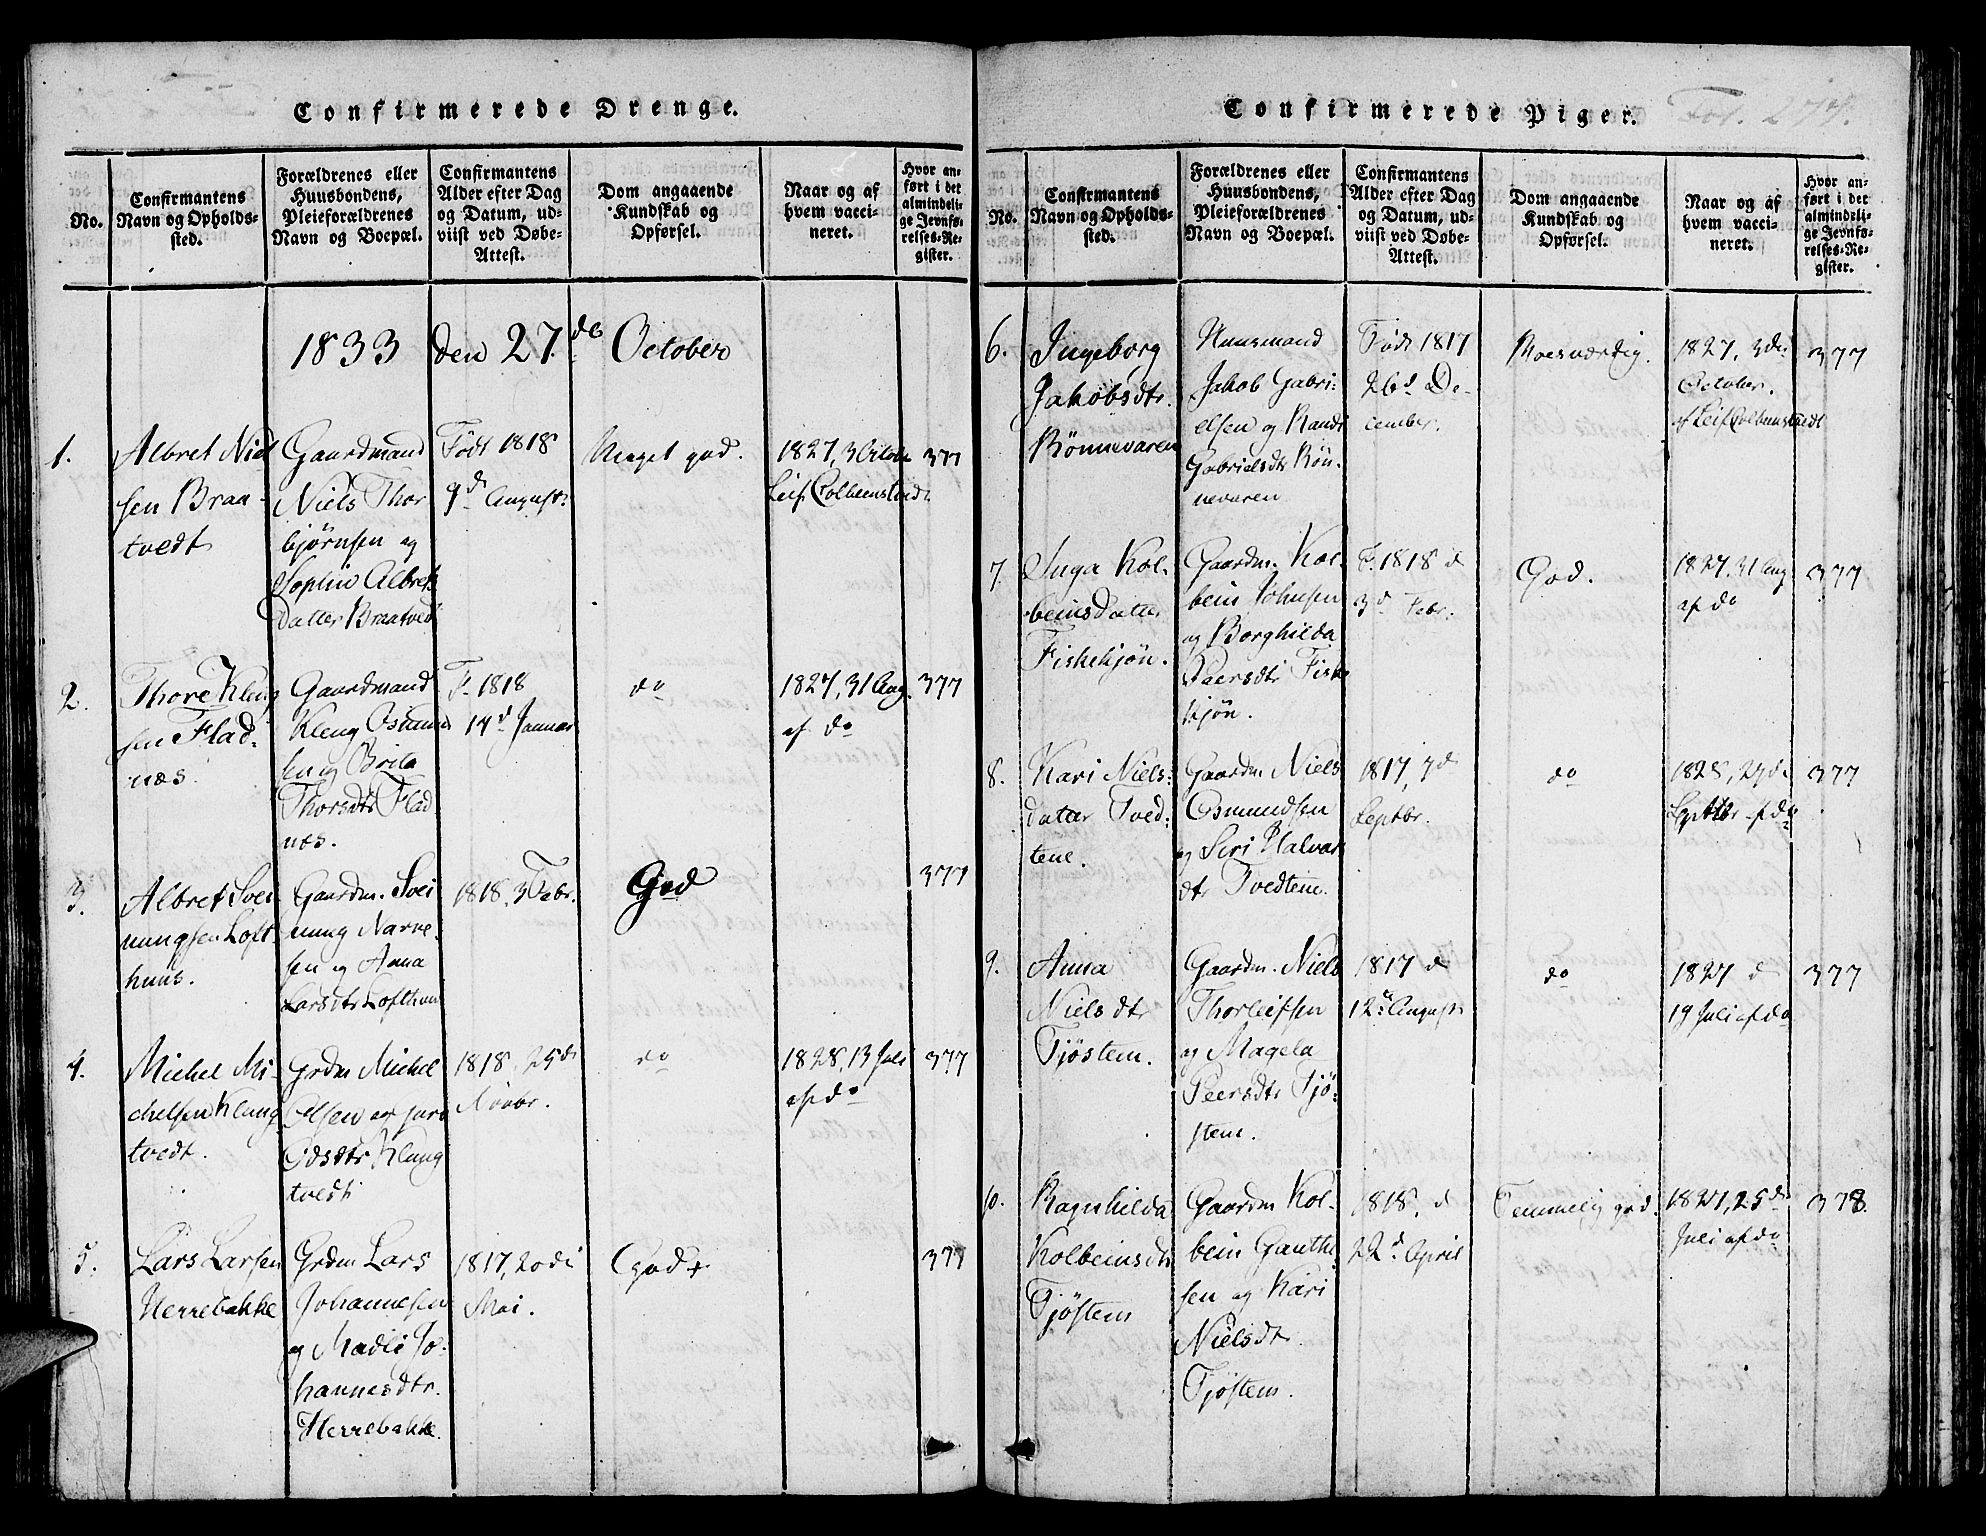 Confirmerede Drenge.
No.
Confirmantens
Navn og Opholds-
sted.
Forældrenes eller
Huusbondens,
Pleieforældrenes
Navn og Boepæl.
Confirmantens
Alder efter Dag
og Datum, ud-
viist ved Døbe-
Attest.
Dom angaaende
Kundskab og
Opførsel.
Naar og af
hvem vacci-
neret.
Hvor an-
ført i det
almindeli-
ge Jevnfø-
relses-Re-
gister.
1833 den 27de October
1.
Albret Niel
sen Braa-
tvedt
Gaardmand
Niels Thor
bjørnsen og
Sophie Albrets
Datter Braatved
Født 1818
9d August
Meget god.
1827, 3 Octobr
Leif Colbeinstvedt
377
2.
Thore Kleng
sen Flad-
næs.
Gaardmand
Kleng Osmund
sen og Brita
Thorsdtr Flad
næs.
F. 1818
14d Januar
do
1827, 31 Aug.
af do
377
3.
Albret Svei
nungsen Loft-
huus.
Gaardm. Svei
nung Narve-
sen og Anna
Larsdtr Lofthuu
1818, 3 Febr.
God
377
4.
Michel Mi-
chelsen Klung
tvedt.
Grdm Michel
Olsen og Juro
Osdtr Klung
tvedt
1818, 25d
Novbr.
do
1828, 13 Juli
af do
377
5.
Lars Larsen
Herrebakke
Grdm Lars
Johannesen
og Madli Jo-
hannesdtr.
Herrebakke.
1817, 20di
Mai.
God
377
Confirmerede Piger.
Fol. 274.
No.
Confirmantens
Navn og Opholds-
sted.
Forældrenes eller
Huusbondens,
Pleieforældrenes
Navn og Boepæl.
Confirmantens
Alder efter Dag
og Datum, ud-
viist ved Døbe-
Attest.
Dom angaaende
Kundskab og
Opførsel.
Naar og af
hvem vacci-
neret.
Hvor an-
ført i det
almindeli-
ge Jevnfø-
relses-Re-
gister.
6.
Ingeborg
Jakobsdtr.
Rönnevaren
Huusmand
Jakob Gabri-
elsen og Randi
Gabrielsdtr Rön-
nevaren
Født 1817
26d De-
cember.
Roesværdig.
1827, 3die
October.
af Leif Colbeinstvedt
377
7.
Inga Kol-
beinsdatter
Fiskekjön.
Gaardm. Kol
bein Johnsen
og Borghilda
Paersdtr Fiske
kjön.
F. 1818 d
3d Febr.
God.
1827, 31 Aug
af do
377
8.
Kari Niels-
datter Tved-
tene.
Gaardm Niels
Osmundsen
og Siri Halvar
dtr Tvedtene.
1817, 7d
Septbr.
do
1828, 27de
Septbr af do
377
9.
Anna
Nielsdtr
Tjöstem.
Gaardm. Niels
Thorleifsen
og Magela
Peersdtr Tjö-
stem.
1817 d
12te August
do
1827 d
19 Juli af do
377
10.
Ragnhilda
Kolbeinsdtr
Tjöstem
Gaardm Kol-
bein Gauthe
sen og Kari
Nielsdtr.
Tjöstem.
1818, d
22d April
Temmelig god.
1827, 25d
Juli af do
378.